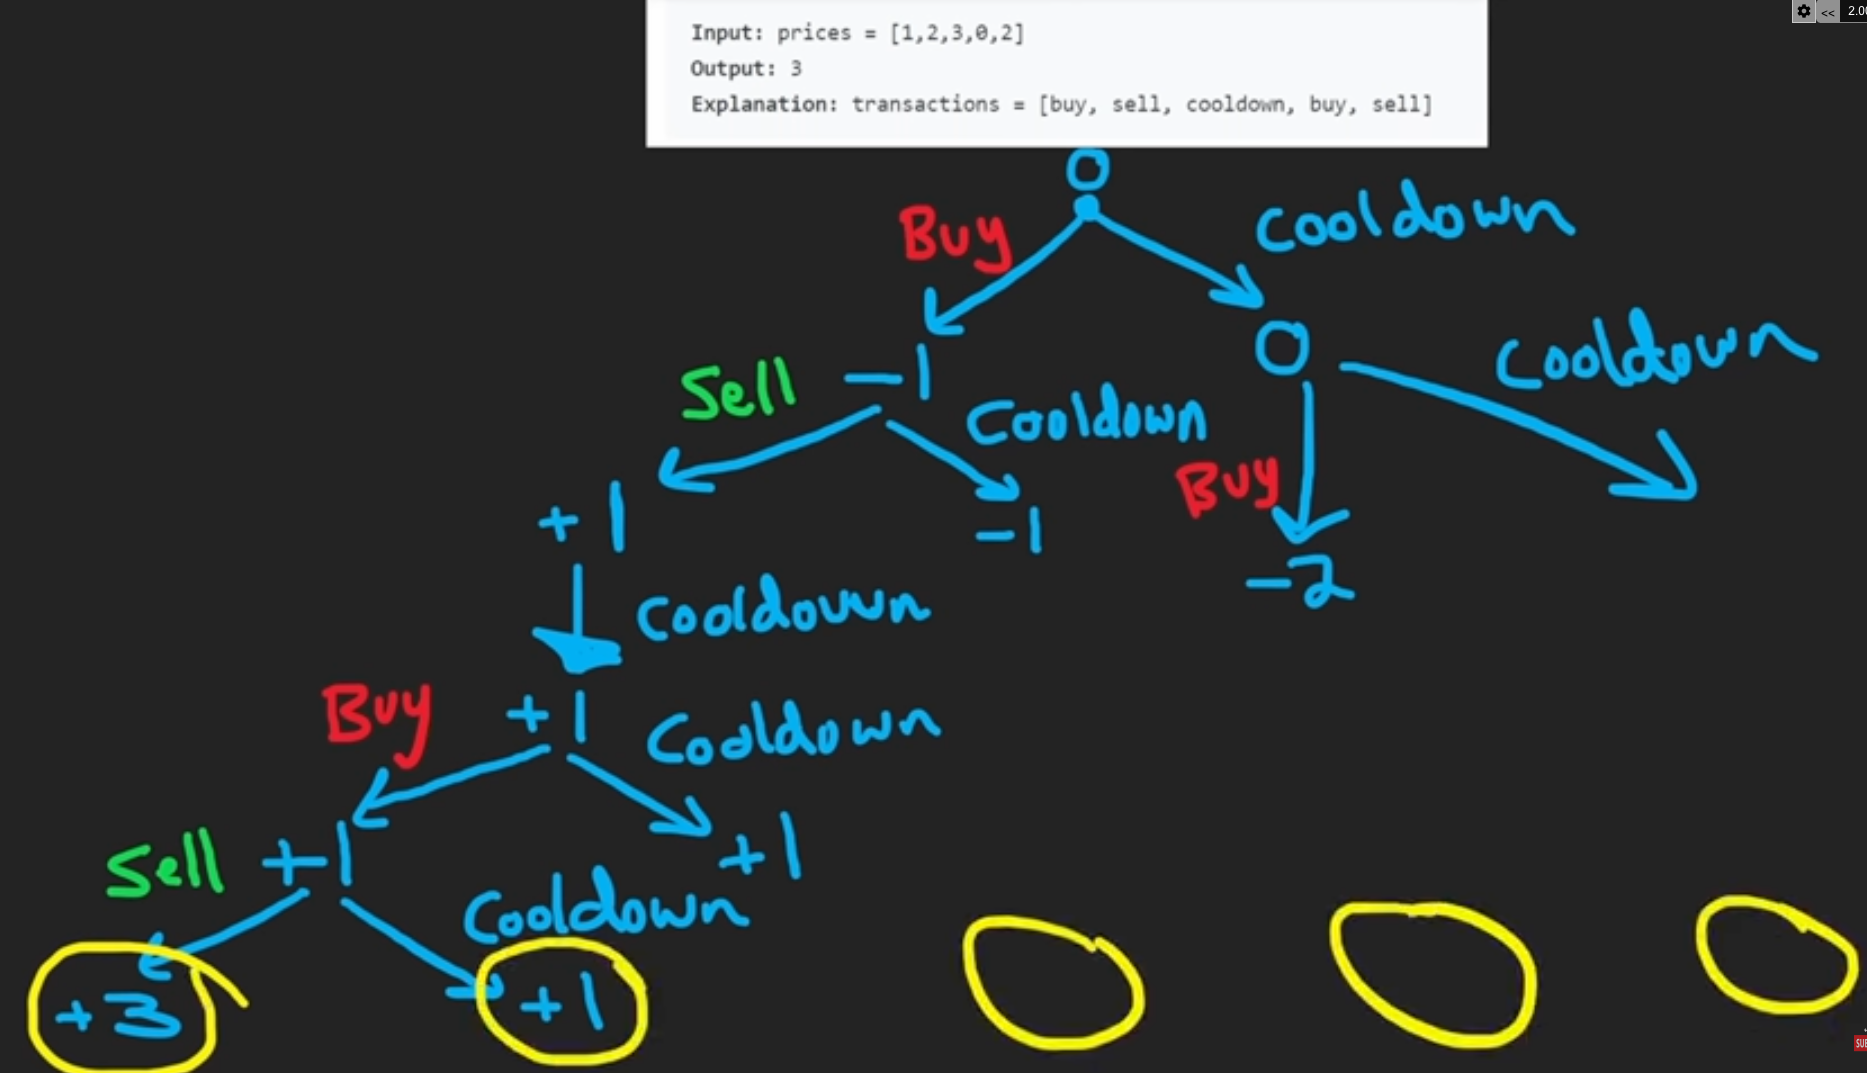 << 2.0
Input: prices = [1,2,3,0,2]
Output: 3
Explanation: transactions = [buy, sell, cooldown, buy, sell]
0
Buy
Cooldown
0
Cooldown
Sell
-1
Cooldown
Buy
+1
-1
-2
Cooldown
Buy
+1
Cooldown
Sell
+1
+1
Cooldown
+3
+1
SUB